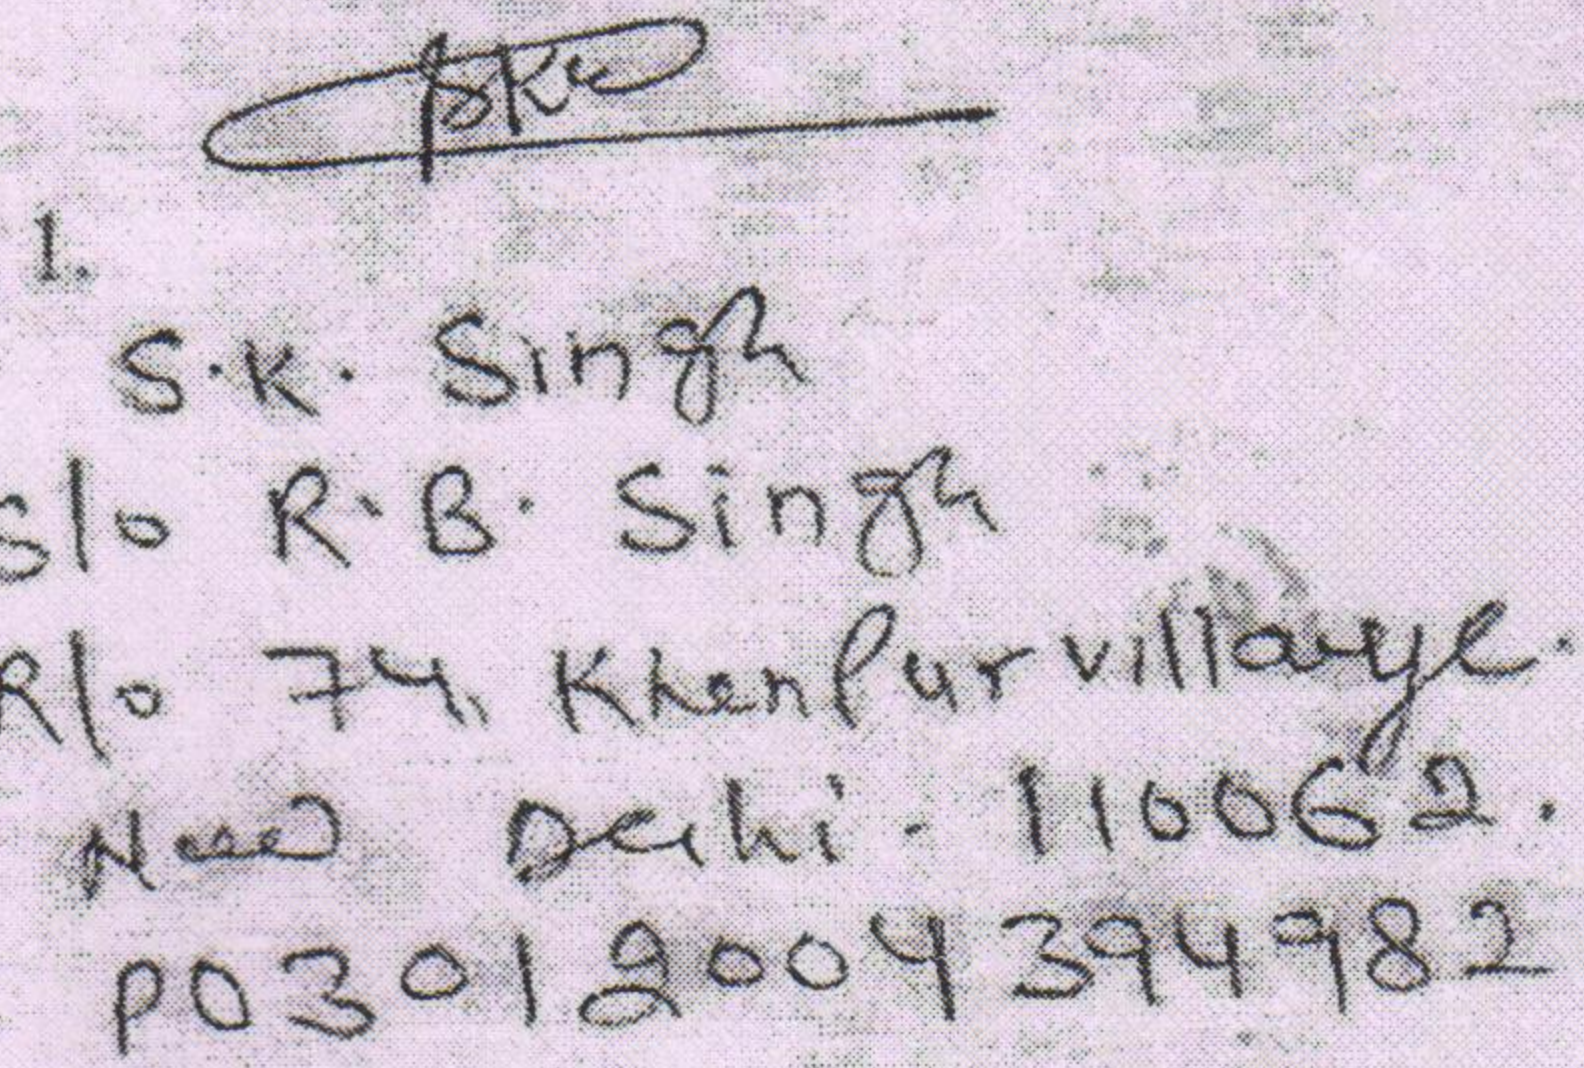 1.
S.K. Singh
S/o R.B. Singh
R/o 74, Khanpur village.
New Delhi - 110062.
P03012004394982